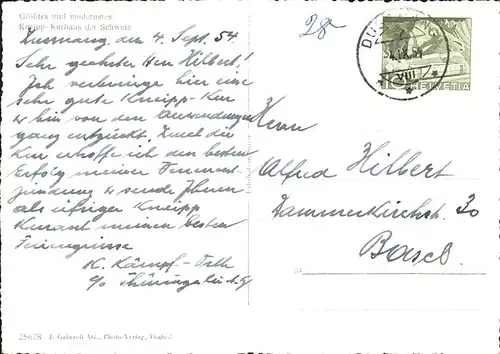 Größtes und modernstes
Kneipp-Kurhaus der Schweiz
Dussnang den 4. Sept. 54
Sehr geehrter Herr Hilbert!
Ich verbringe hier eine
sehr gute Kneipp-Kur
u. bin von den Anwendungen
ganz entzückt. Durch die
Kur erhoffe ich den besten
Erfolg meiner
u. sende Ihnen
als eifriger Kneipp
Kurant meinen besten
Feriengrüsse
K. Kämpf-
c/o
25678 J. Gaberell AG., Photo-Verlag, Thalwil
28
4.IX.54
VIII
HELVETIA
Herrn
Alfred Hilbert
Dammerkirchstr. 30
Basel